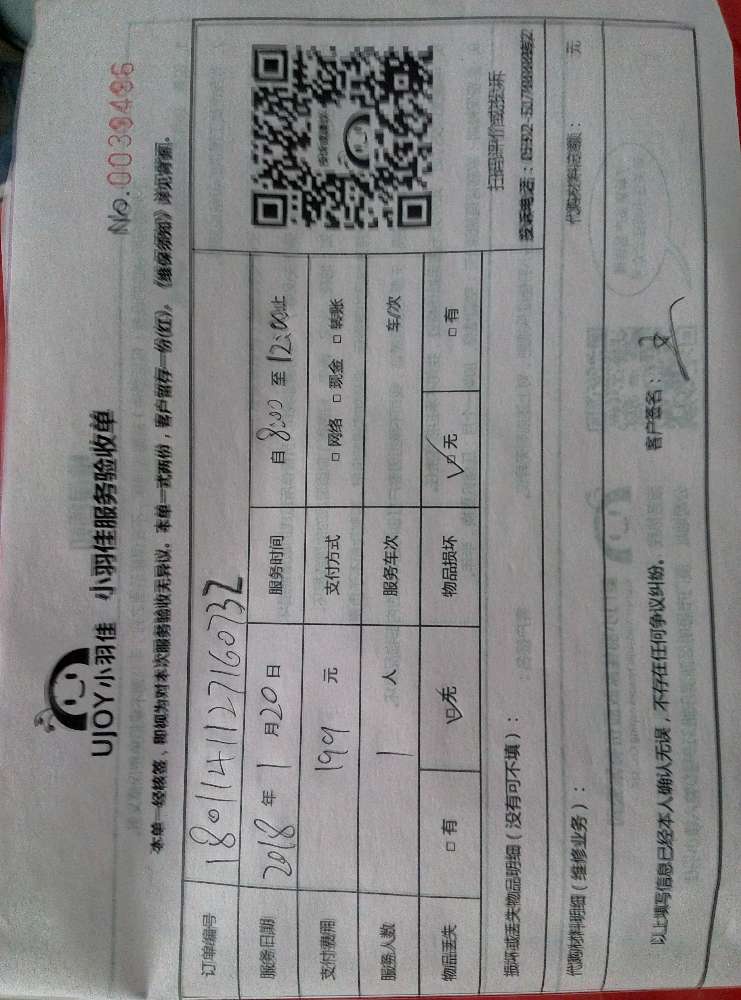 UJOY小羽佳 小羽佳服务验收单
No.0039496
本单一经核签，即视为对本次服务验收无异议。本单一式两份，客户留存一份(红)。《维保须知》详见背面。
订单编号 1801141127160732
服务日期 2018年1月20日 服务时间 自8:00至12:00止
支付费用 199元 支付方式 □网络 □现金 □转账
服务人数 1人 服务车次 车/次
物品丢失 □有 □无 物品损坏 □无 □有
扫码评价或投诉
投诉电话：
损坏或丢失物品明细（没有可不填）：
代购材料明细（维修业务）： 代购材料总额： 元
以上填写信息已经本人确认无误，不存在任何争议纠纷。 客户签名：